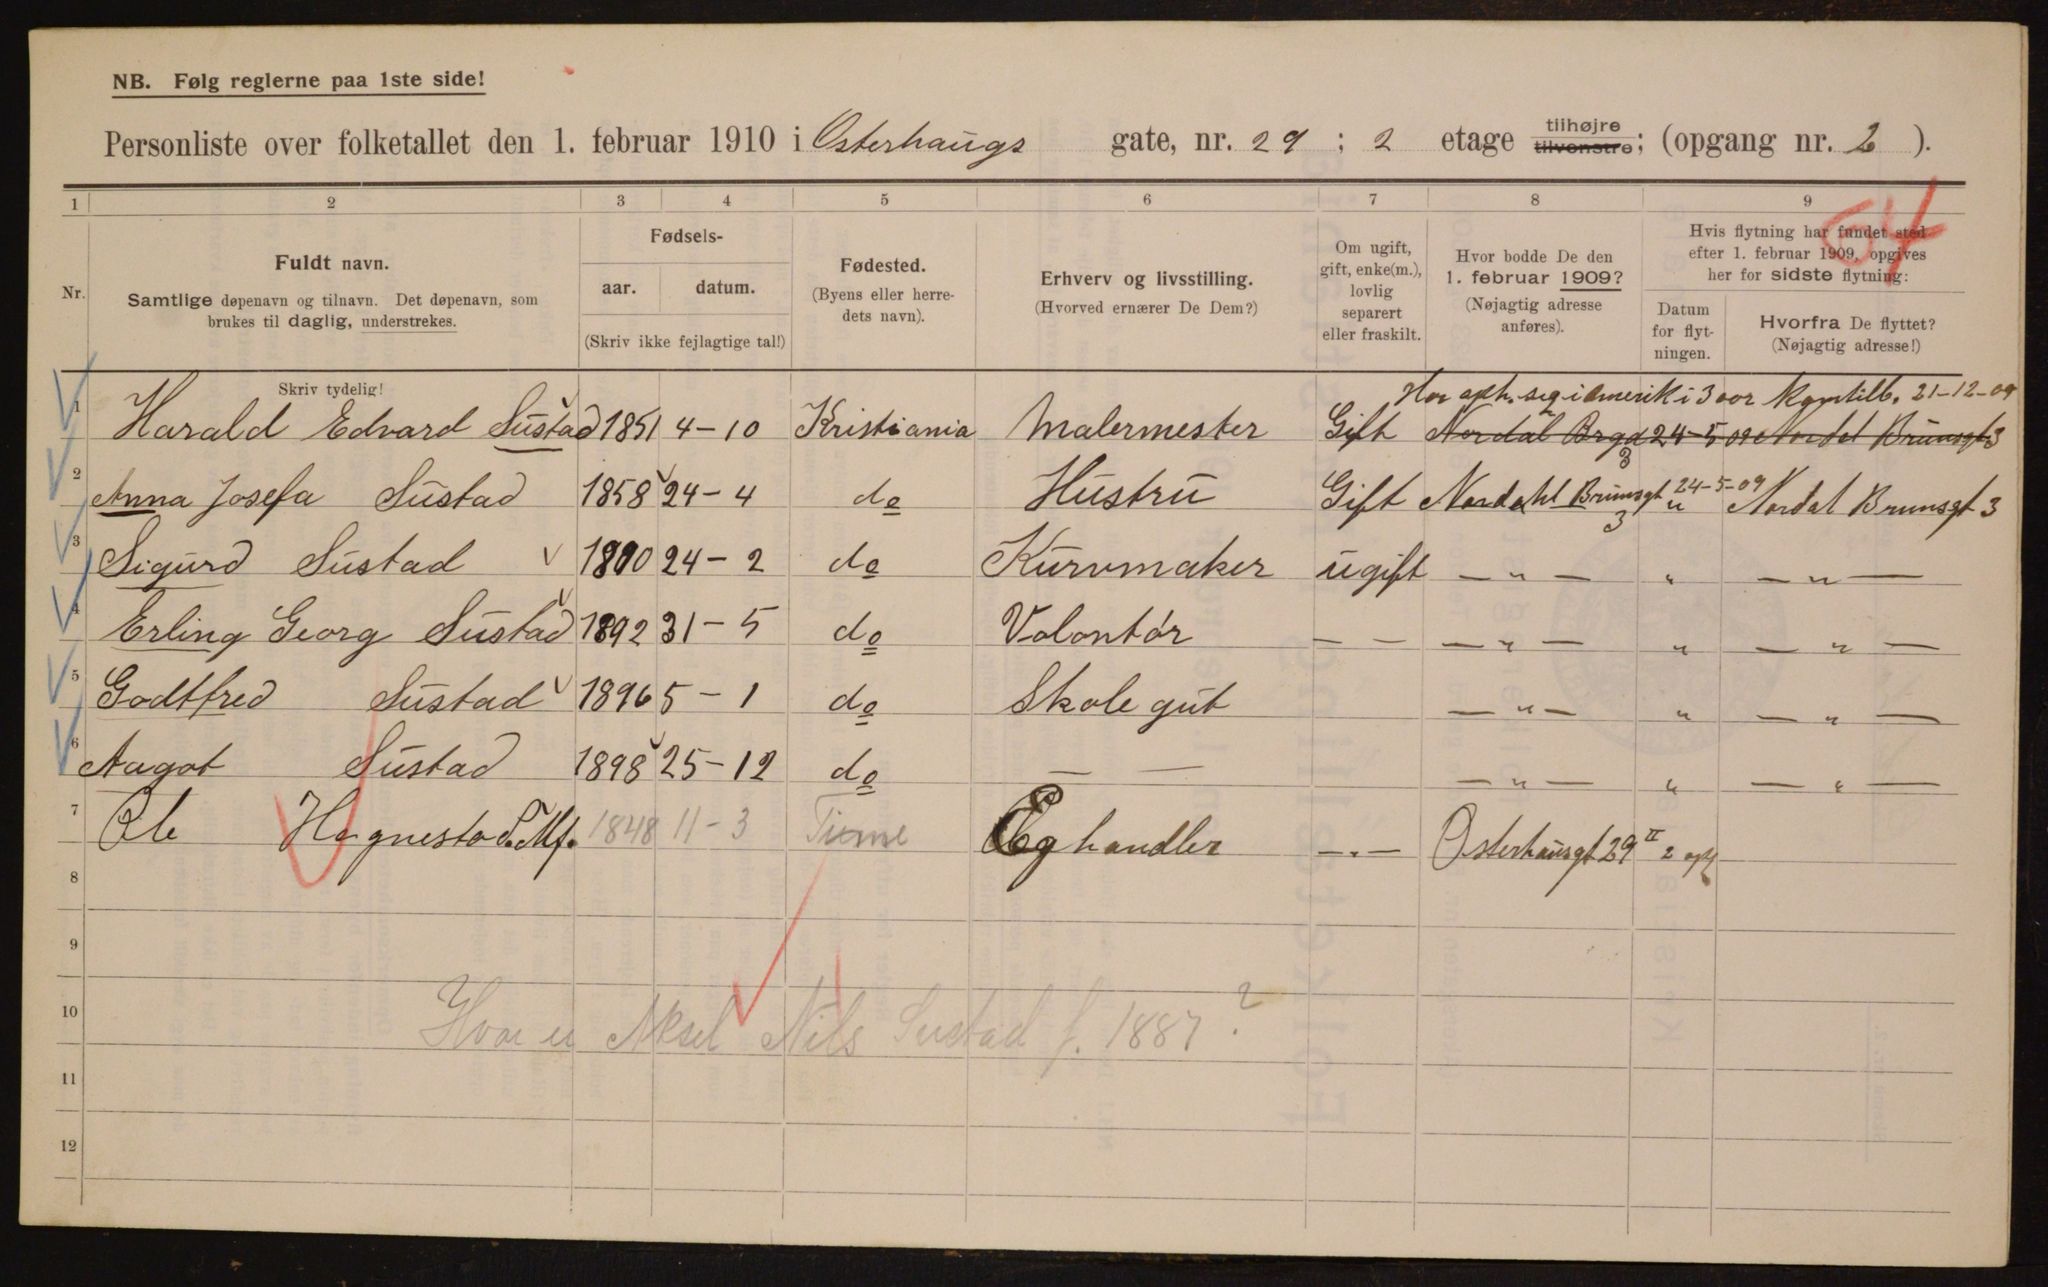 NB. Følg reglerne paa 1ste side!
Personliste over folketallet den 1. februar 1910 i Osterhaugs gate, nr. 29 ; 2 etage tilhøjre tilvenstre; (opgang nr. 2 ).
1 2 3 4 5 6 7 8 9
Nr.
Fuldt navn.
Samtlige døpenavn og tilnavn. Det døpenavn, som
brukes til daglig, understrekes.
Skriv tydelig!
Fødsels-
aar. datum.
(Skriv ikke fejlagtige tal!)
Fødested.
(Byens eller herre-
dets navn).
Erhverv og livsstilling.
(Hvorved ernærer De Dem?)
Om ugift,
gift, enke(m.),
lovlig
separert
eller fraskilt.
Hvor bodde De den
1. februar 1909?
(Nøjagtig adresse
anføres).
Hvis flytning har fundet sted
efter 1. februar 1909, opgives
her for sidste flytning:
Datum
for flyt-
ningen.
Hvorfra De flyttet?
(Nøjagtig adresse!)
Har oph. seg i Amerik i 3 aar kom tilb. 21-12-09
1 Harald Edvard Sustad 1851 4-10 Kristiania Malermester Gift Nordal Brgd 3 24-5 09 Nordal Brunsgt 3
2 Anna Josefa Sustad 1858 24-4 do Hustru Gift Nordahl Brunsgt 3 24-5-09 Nordal Brunsgt 3
3 Sigurd Sustad 24-2 do Kurvmaker ugift — " — " — " —
4 Erling Georg Sustad 1892 31-5 do Volontør — — — " — " — " —
5 Godtfred Sustad 1896 5-1 do Skole gut — " — " — " —
6 Aagot Sustad 1898 25-12 do — — — " — " — " —
7 Ole Hognestad. Mf. 1848 11-3 Time Eghandler — " — Osterhausgt 29 II 2 opg
8
9
10 Hvor er Aksel Nils Sustad f. 1887 ?
11
12